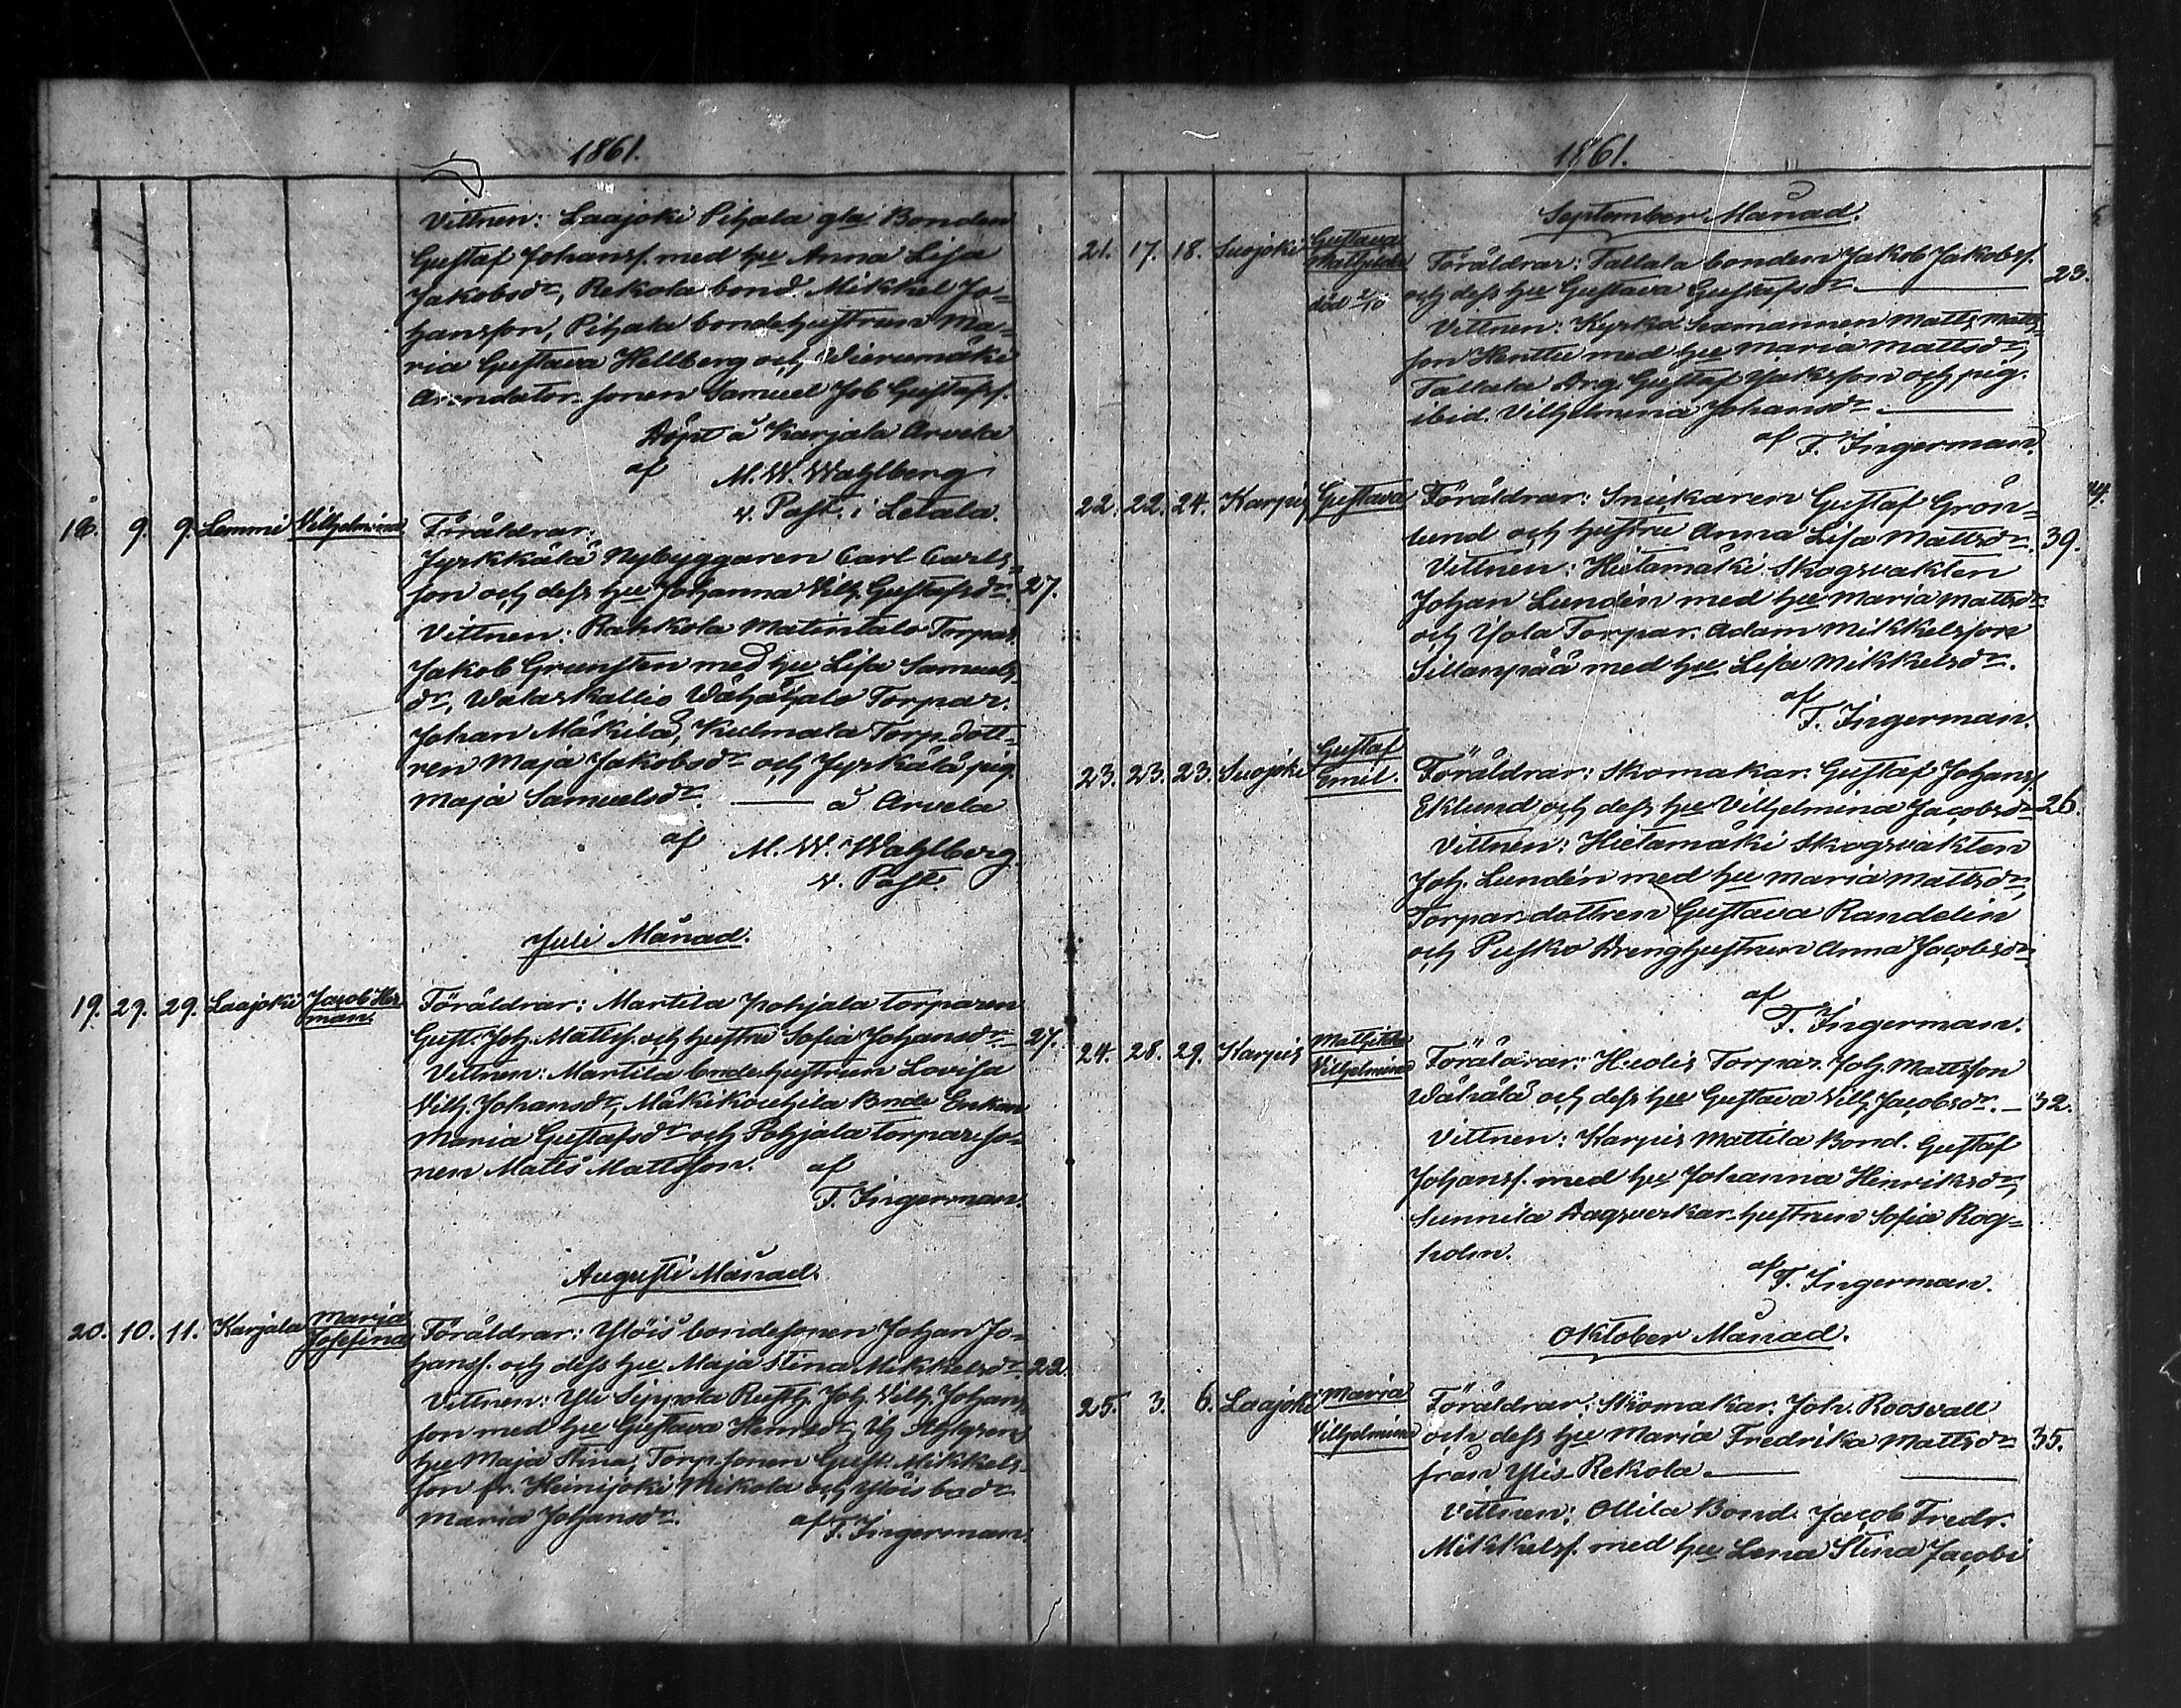 1861.
Vittnen: Laajoki Pihala gla Bonden
Gustaf Johanss. med hu Anna Lisa
Jakobsdr, Rekola bond. Mikkel Jo=
hansson, Pihala bondehustrun Ma=
ria Gustava Hellberg och Vierumäki
Arendator-sonen Samuel Job Gustafss.
Döpt å Karjala Arvela
af M. W. Wahlberg
v. Past. i Letala.
18. 9. 9. Lemmi Vilhelmina Föräldrar:
Jyrkkälä Nybyggaren Carl Carls=
son och dess hu Johanna Vilh. Gustafsdr. 27.
Vittnen: Rahkola Matintalo Torpar.
Jakob Grunsten med hu Lisa Samuels
dr, Walaskallio Wähätalo Torpar.
Johan Mäkilä, Kulmala Torp. dott=
ren Maja Jakobsdr och Jyrkälä pig.
Maja Samuelsdr. — å Arvela
af M. W. Wahlberg
v. Past.
Juli Månad.
19. 29. 29. Laajoki Jacob Her
man. Föräldrar: Martila Pohjala torparen
Gust. Joh. Matss. och hustru Sofia Johansdr. — 27.
Vittnen: Martila bondehustrun Lovisa
Vilh. Johansdr, Mäkikouhila Bnde Enkan
Maria Gustafsdr och Pohjala torpare so=
nen Matts Mattsson. af
F. Ingerman.
Augusti Månad.
20. 10. 11. Karjala Maria
Josefina Föräldrar: Ylöis bondesonen Johan Jo=
hanss. och dess hu Maja Stina Mikkelsdr. 22.
Vittnen: Yli Sippola Rusth. Joh. Vilh. Johans
son med hu Gustava Henrsdr, Ahlgrens
hu Maja Stina, Torp. sonen Gust. Mikkels=
son fr. Heinijoki Mikola och Ylöis bodr
Maria Johansdr. af F. Ingerman.
1861.
September Månad.
21. 17. 18. Suojoki Gustava
Mathilda
död 2/10 Föräldrar: Tallala bonden Jakob Jakobss.
och dess hu Gustava Gustafsdr — 23.
Vittnen: Kyrko Sexmannen Matts Matts
son Henttu med hu Maria Mattsdr,
Tallala Drg. Gustaf Jaksson och pig.
ibid. Vilhelmina Johansdr. —
af F. Ingerman.
22. 22. 24. Karpis Gustava Föräldrar: Snickaren Gustaf Grön=
lund och hustru Anna Lisa Mattsdr. 39.
Vittnen: Hietamäki Skogsvakten
Johan Lundin med hu Maria Mattsdr
och Yola Torpar. Adam Mikkelsson
Sillanpää med hu Lisa Mikkelsdr.
af
F. Ingerman.
23. 23. 23. Suojoki Gustaf
Emil. Föräldrar: Skomakar. Gustaf Johanss.
Eklund och dess hu Vilhelmina Jacobsdr 26.
Vittnen: Hietamäki Skogsvakten
Joh. Lundén med hu Maria Mattsdr,
Torpar-dottren Gustava Randelin
och Pusko Drenghustrun Anna Jacobsdr
af
F. Ingerman.
24. 28. 29. Karpis Mathilda
Vilhelmina Föräldrar: Huolis Torpar. Joh. Mattsson
Wähälä och dess hu Gustava Vilh. Jacobsdr. — 32.
Vittnen: Karpis Mattila Bond. Gustaf
Johanss. med hu Johanna Henriksdr,
Sunnila Dagsverkar-hustrun Sofia Rog=
holm.
af F. Ingerman.
Oktober Månad.
25. 3. 6. Laajoki Maria
Vilhelmina Föräldrar: Skomakar. Joh. Roosvall
och dess hu Maria Fredrika Mattsdr 35.
från Ylis Rekola. —
Vittnen: Ollila Bond. Jacob Fredr.
Mikkelss. med hu Lena Stina Jacobs